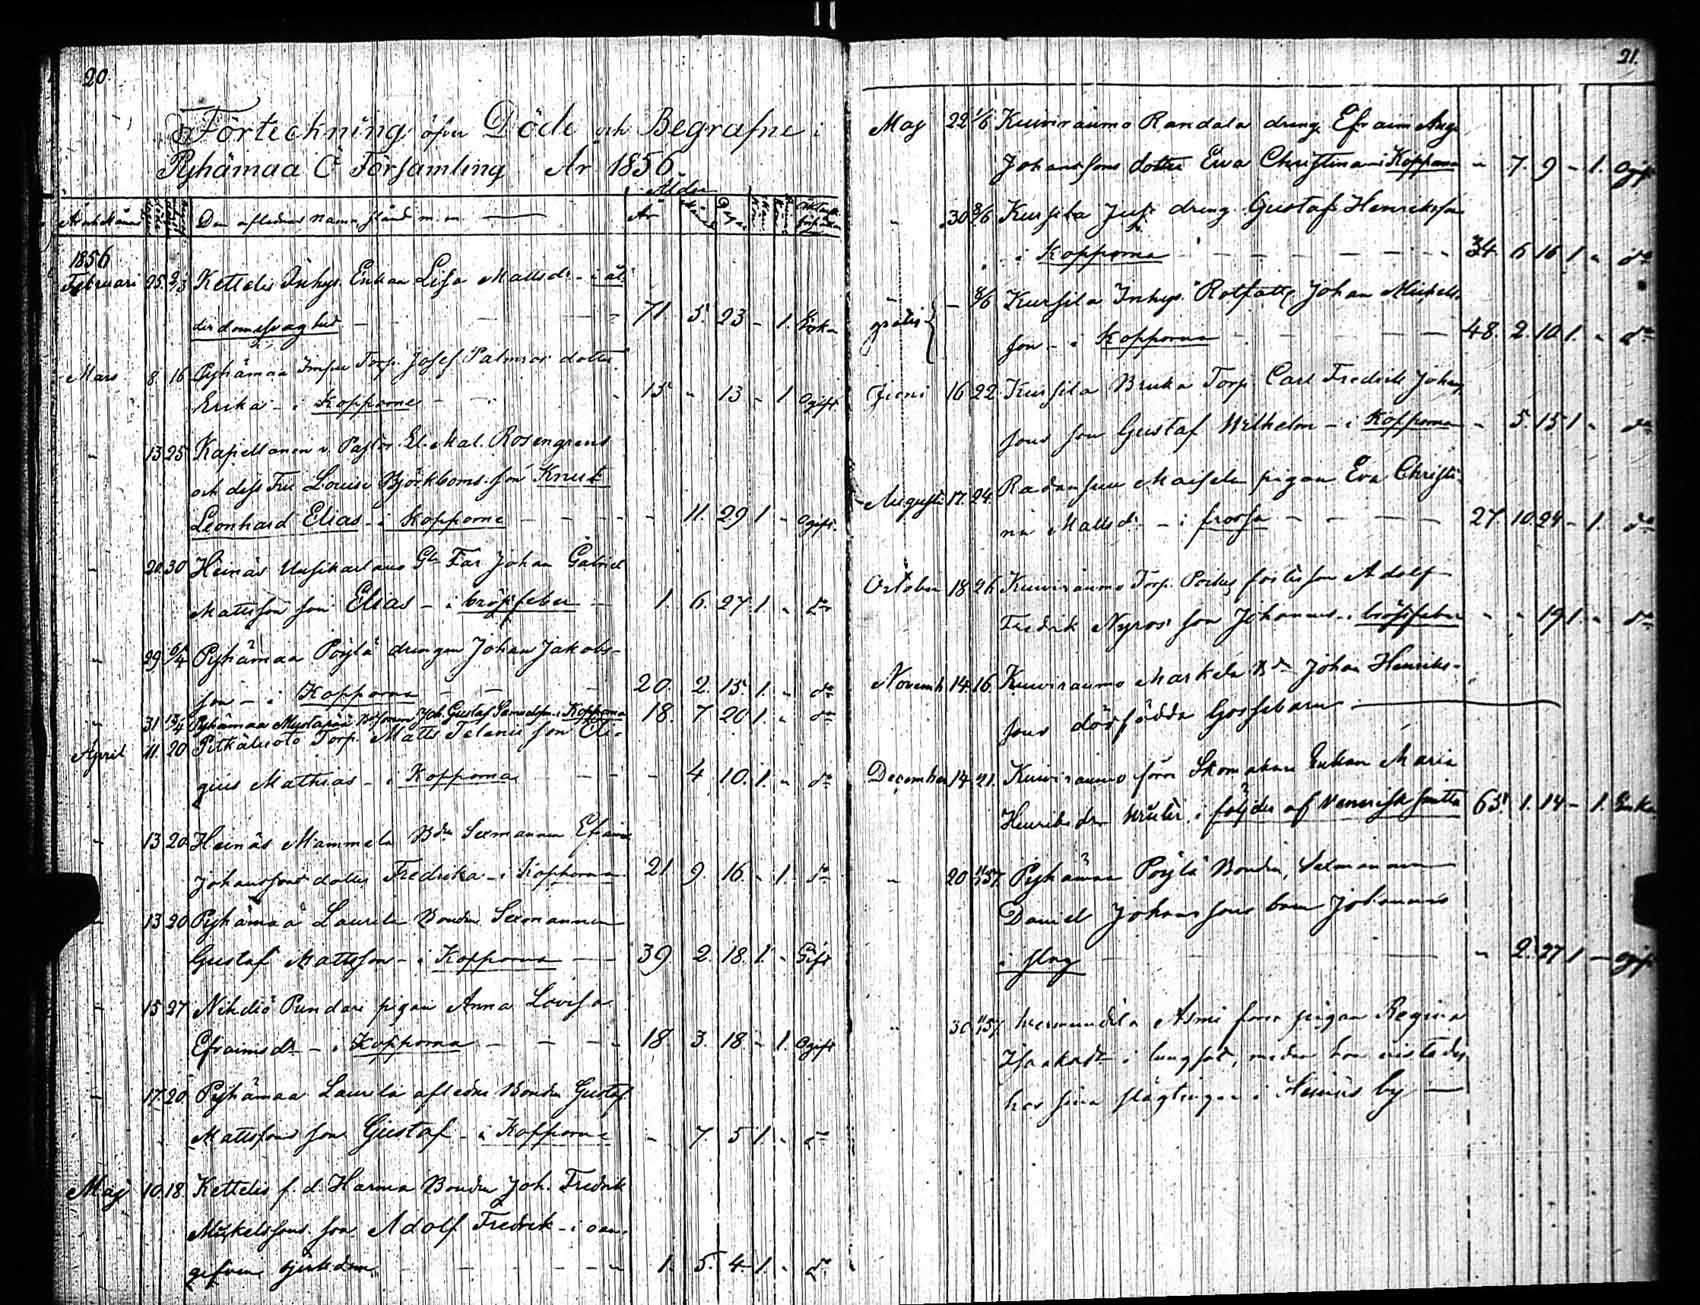 20
Förteckning öfver Döde och Begrafne i
Pyhämaa C Församling År 1856
Ålder
Den aflednes namn, stånd m.m. År
1856
Februari 25 2/3 Kettelis Inhys. Enkan Lisa Mattsdr - i ål-
derdomssvaghet - 71 5. 23 - 1. Enka
Mars 8 16 Pyhämaa Torp. Josef Palmros dotter
Erika - i Kopporne - 15 - 13 - 1 Ogift
- 13 25 Kapellanen v. Pastor El. Mat. Rosengrens
och dess Fru Louise Björkboms son Knut
Leonhard Elias - i Kopporne - - 11. 29 1 - Ogift.
- 20 30 Heinäs Uusikartano Johan Gabriel
Mattsson son Elias - i bröstfeber - 1. 6. 27. 1 - do
- 29 6/4 Pyhämaa Pöylä drengen Johan Jakobs-
son - i Kopporna - 20 2. 15. 1. - do
- 31 13/4 Pyhämaa Joh. Gustaf Samuelsson i Kopporna 18. 7 20 1. - do
April 11. 20 Pitkäluoto Torp. Matts Telenii son Eli-
gius Mathias - i Kopporna - - 4 10. 1. - do
- 13 20 Heinäs Mammela Bdn Sexmannen Efraim
Johanssons dotter Fredrika - i Kopporna 21 9 16 - 1. do
- 13 20 Pyhämaa Laurila Bonden Sexmannen
Gustaf Mattsson - i Kopporna - 39 2. 18. 1 - Gift
- 15 27 Nihdiö Pundari pigan Anna Lovisa
Efraimsdr - i Kopporna - - - 18 3. 18. - 1. Ogift
- 17 20 Pyhämaa Laurila afledne Bonden Gustaf
Mattssons son Gustaf - i Kopporne - 7. 5 1. - do
Maj 10. 18. Kettelis f. d. Harma Bonden Joh. Fredrik
Mickelssons son Adolf Fredrik - i oan-
gifven sjukdom. - 1. 5. 4 1. - do
21.
Maj 22 1/6 Kuivirauma Randala dreng. Efraim Aug.
Johanssons dotter Eva Christina i Kopporna - 7. 9 - 1. Ogift
- 30 8/6 Kursila dreng Gustaf Henriksson
i Kopporna - - - 34 6 16 1 - do
gratis - 8/6 Kursila Inhys. Rotfattig Johan Mickels-
son - i Kopporna - - - 48. 2. 10 1. - do
Juni 16 22 Kursila Bruka Torp. Carl Fredrik Johans-
sons son Gustaf Wilhelm - i Kopporna - 5. 15 1 - do
Augusti 17. 24 Maisela pigan Eva Christi-
na Mattsdr - i frossa - - - 27. 10. 24 - 1. do
October 18 26 Kuivirauma Torp. Adolf
Fredrik Nyros son Johannes - i bröstfeber - - 19 1 - do
Novemb. 14. 16. Kuivirauma Markela Bdn Johan Henriks-
sons dödfödda Gossebarn
December 14 21. Kuivirauma förre Skomakare Enkan Maria
Henriksdr i följder af Venerisk smitta 65. 1. 14 - 1. Enka
- 20 Pyhämaa Pöylä Bonden, Sexmannen
Daniel Johanssons barn Johannes
i slag - - - 2. 27 1 - Ogift
- 30 Wermundila förra pigan Regina
Isaksdr i lungsot, medan hon vistades
hos sina slägtingar i Heinäs by -